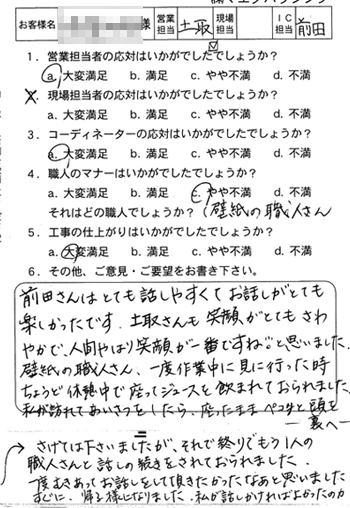 お客様名 様 営業担当 土取 現場担当 IC担当 前田
1. 営業担当者の応対はいかがでしたでしょうか?
a. 大変満足 b. 満足 c. やや不満 d. 不満
2. 現場担当者の応対はいかがでしたでしょうか?
a. 大変満足 b. 満足 c. やや不満 d. 不満
3. コーディネーターの応対はいかがでしたでしょうか?
a. 大変満足 b. 満足 c. やや不満 d. 不満
4. 職人のマナーはいかがでしたでしょうか?
a. 大変満足 b. 満足 c. やや不満 d. 不満
それはどの職人でしょうか?(壁紙の職人さん
5. 工事の仕上がりはいかがでしたでしょうか?
a. 大変満足 b. 満足 c. やや不満 d. 不満
6. その他、ご意見・ご要望をお書き下さい。
前田さんはとても話しやすくてお話しがとても
楽しかったです。土取さんも笑顔がとてもさわ
やかで、人間やはり笑顔が一番ですね。と思いました。
壁紙の職人さん、一度作業中に見に行った時
ちょうど休憩中で座ってジュースを飲まれておられました
私が訪れてあいさつをしたら、座ったままペコッと頭を
裏へ
さげては下さいましたが、それで終りでもう1人の
職人さんと話しの続きをされておられました。
一度むきあってお話しをして頂きたかったなあと思いました
すぐに、帰る様になりました。私が話しかければよかったのか